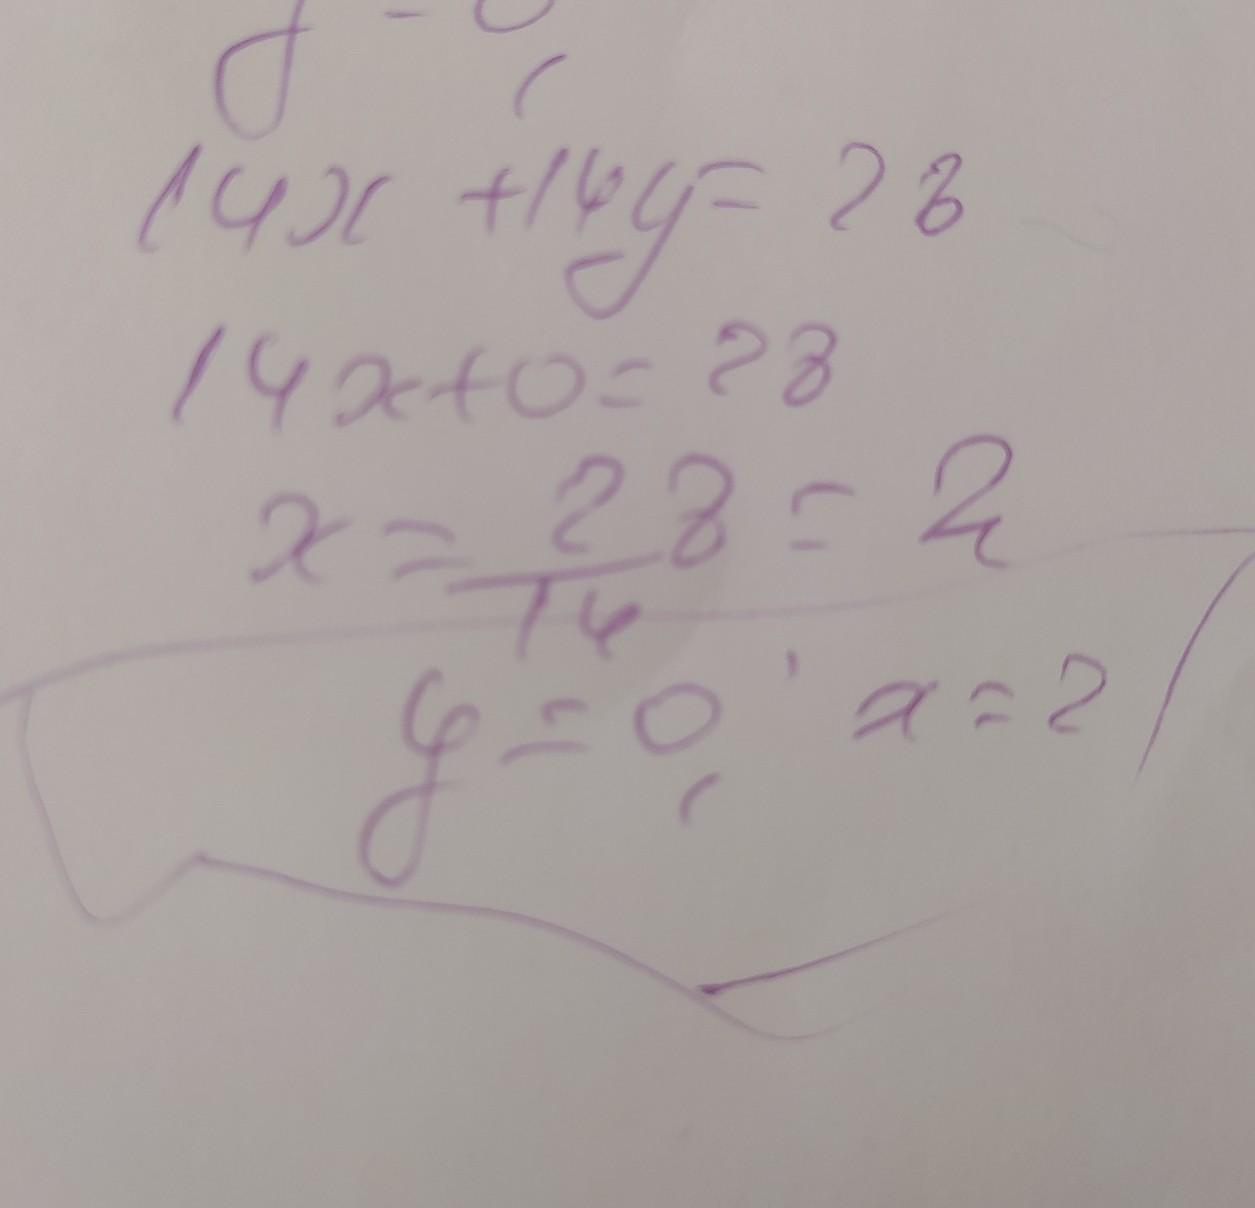 y = 0
14x + 14y = 28
14x + 0 = 28
x = 28/14 = 2
y = 0, x = 2